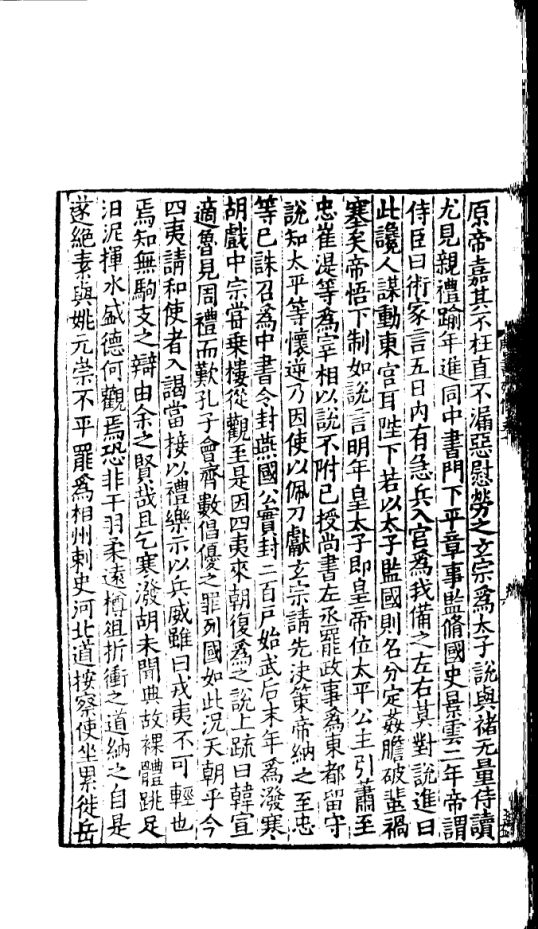 原帝嘉其不枉直不漏惡慰勞之玄宗爲太子說與禇无量侍讀
尤見親禮踰年進同中書門下平章事監脩國史景雲二年帝謂
侍臣曰術家言五日內有急兵入宫爲我備之左右莫對說進曰
此讒人謀動東宫耳陛下若以太子監國則名分定姦膽破蜚禍
塞矣帝悟下制如說言明年皇太子即皇帝位太平公主引蕭至
忠崔湜等爲宰相以說不附已授尚書左丞罷政事爲東都留守
說知太平等懷逆乃因使以佩刀獻玄宗請先决策帝納之至忠
等已誅召爲中書令封燕國公實封二百戶始武后末年爲潑寒
胡戲中宗嘗乗樓從觀至是因四夷來朝復爲之說上疏曰韓宣
適魯見周禮而歎孔子會齊數倡優之罪列國如此况天朝乎今
四夷請和使者入謁當接以禮樂示以兵威雖曰戎夷不可輕也
焉知無駒支之辯由余之賢哉且乞寒潑胡未聞典故裸體跳足
汩泥揮水盛德何觀焉恐非干羽柔遠樽俎折衝之道納之自是
遂絕素與姚元崇不平罷爲相州剌史河北道按察使坐累徙岳